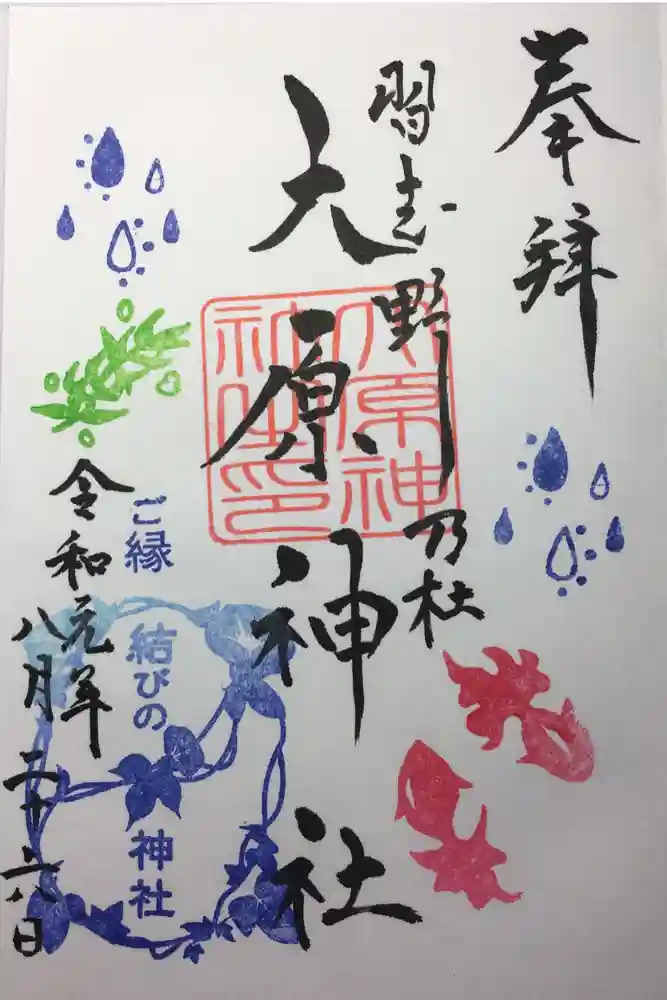 奉拝
習志野乃杜
大原神社
大原神社印
ご縁
結びの
神社
令和元年
八月二十六日